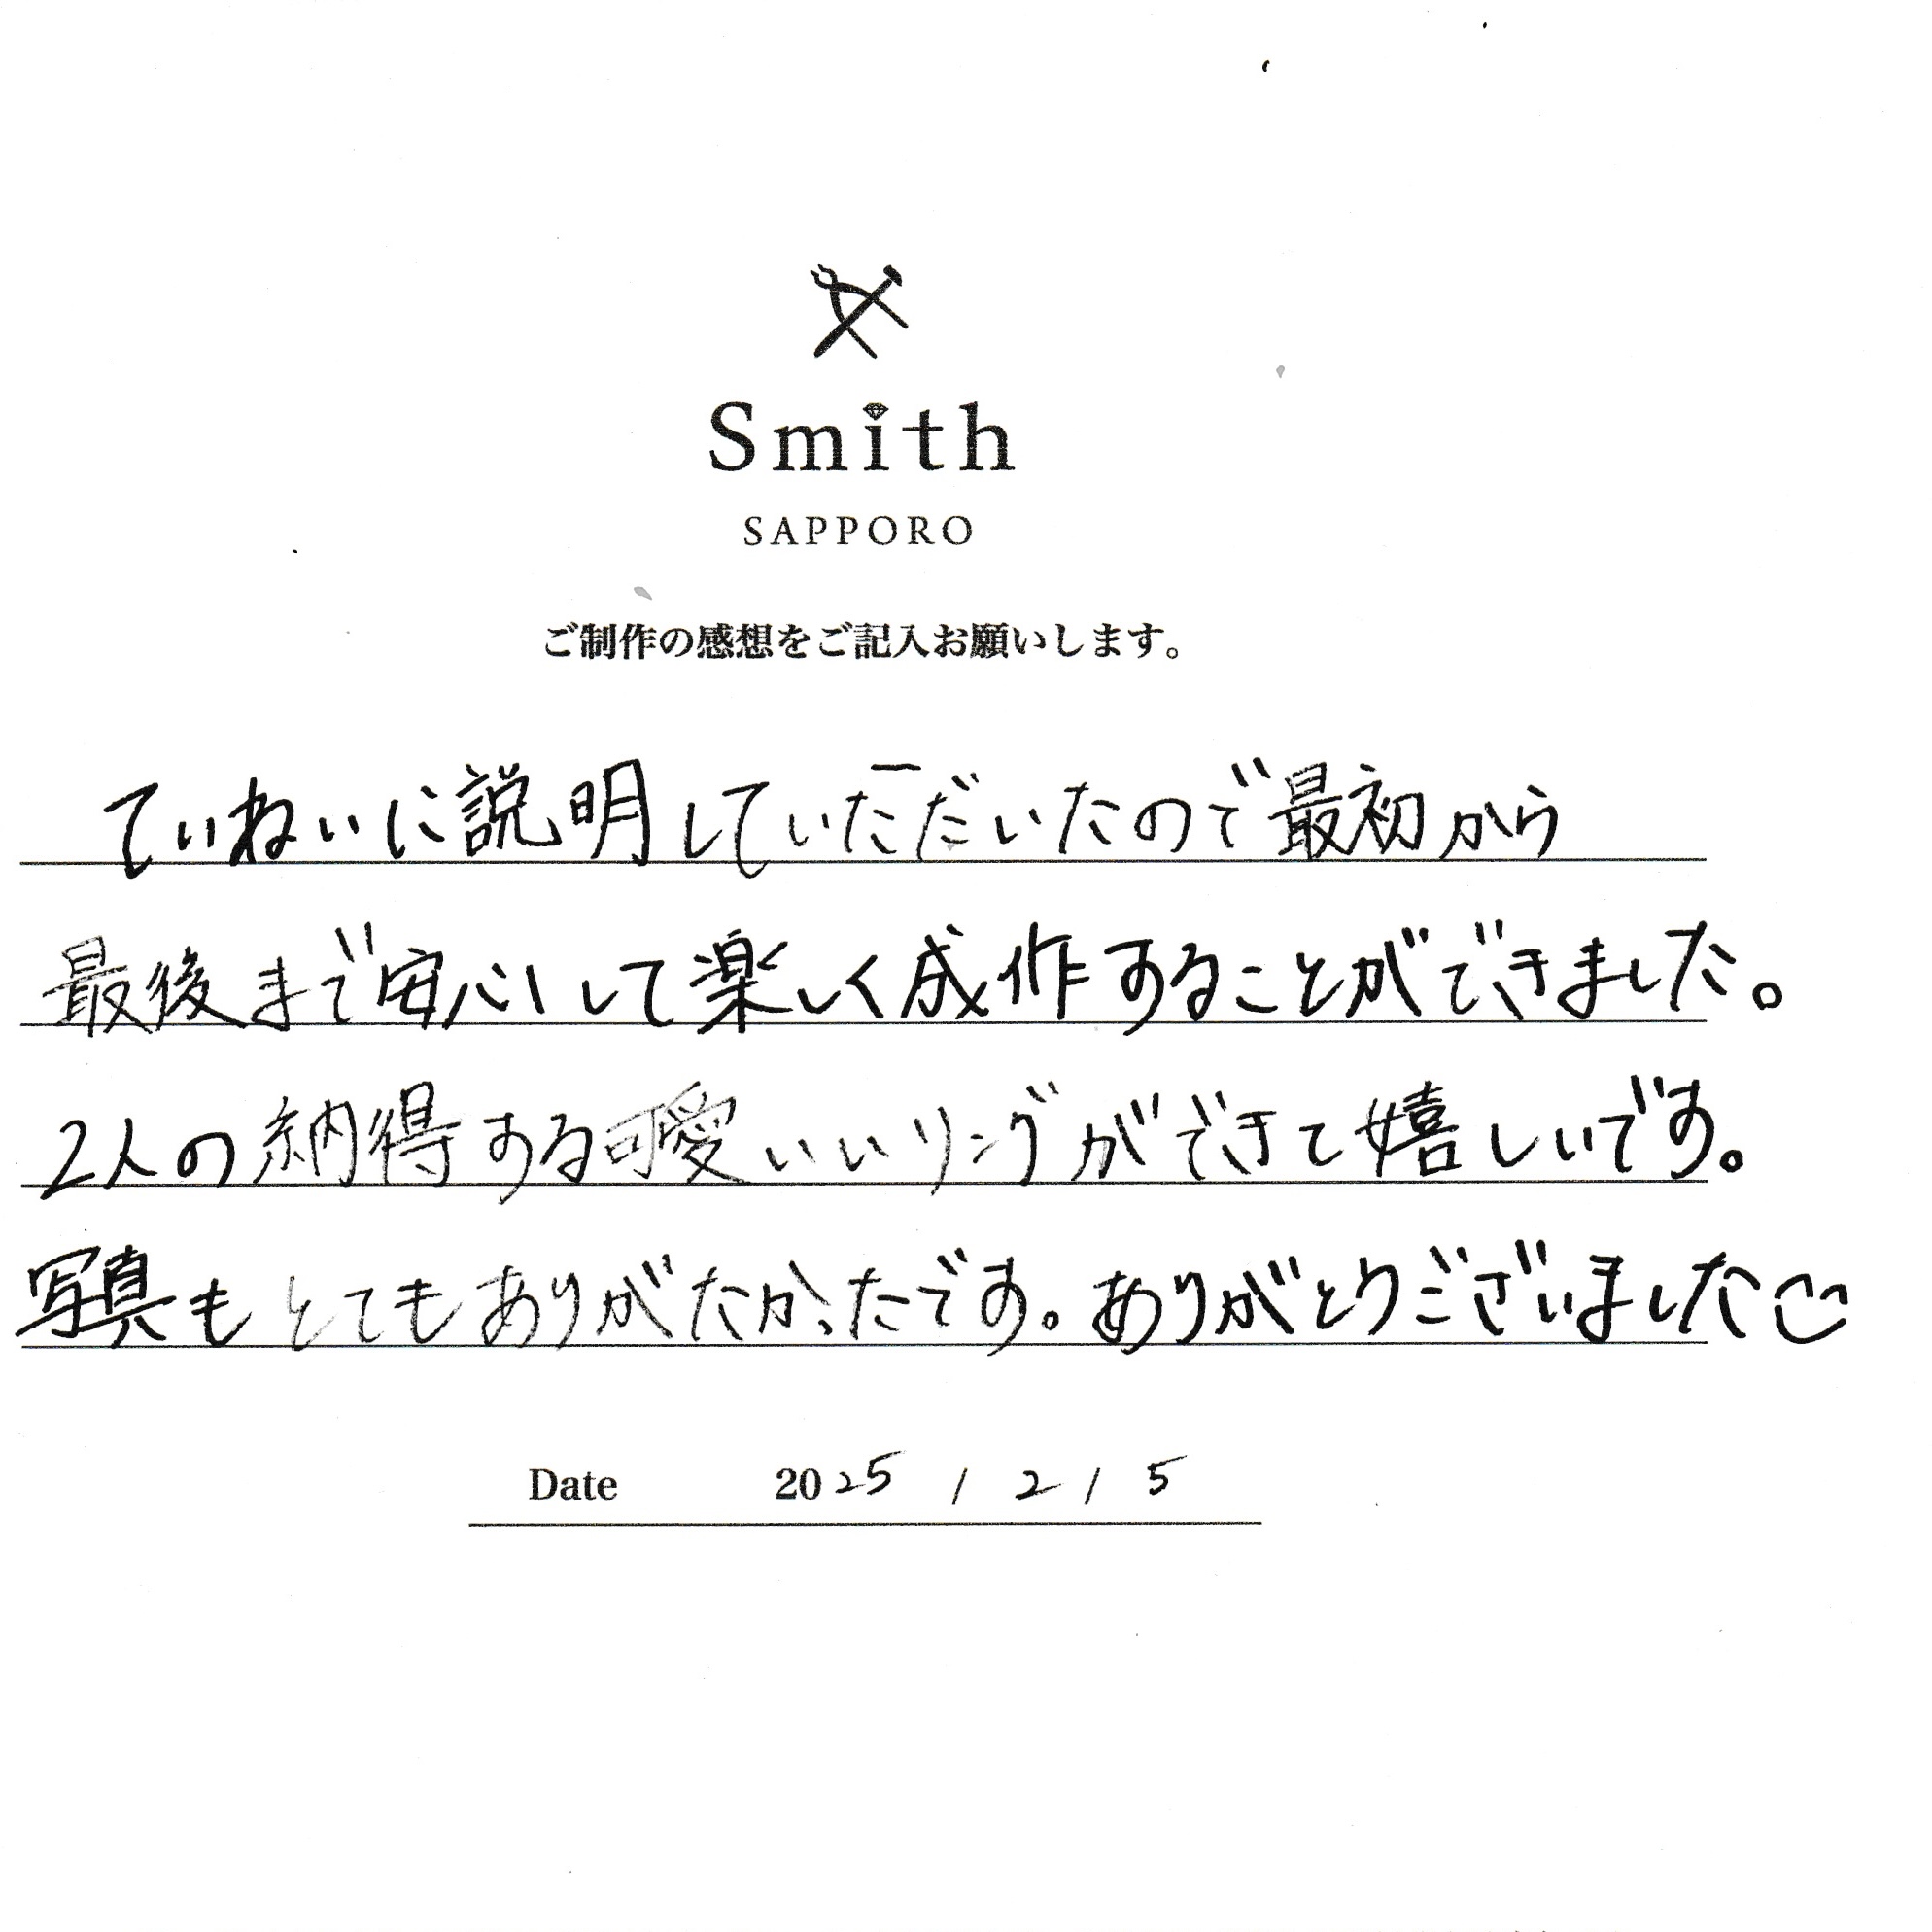 Smith
SAPPORO
ご制作の感想をご記入お願いします。
ていねいに説明していただいたので最初から
最後まで安心して楽しく成作することができました。
2人の納得する可愛いいリングができて嬉しいです。
写真もとてもありがたかったです。ありがとうございました
Date 2025/2/5